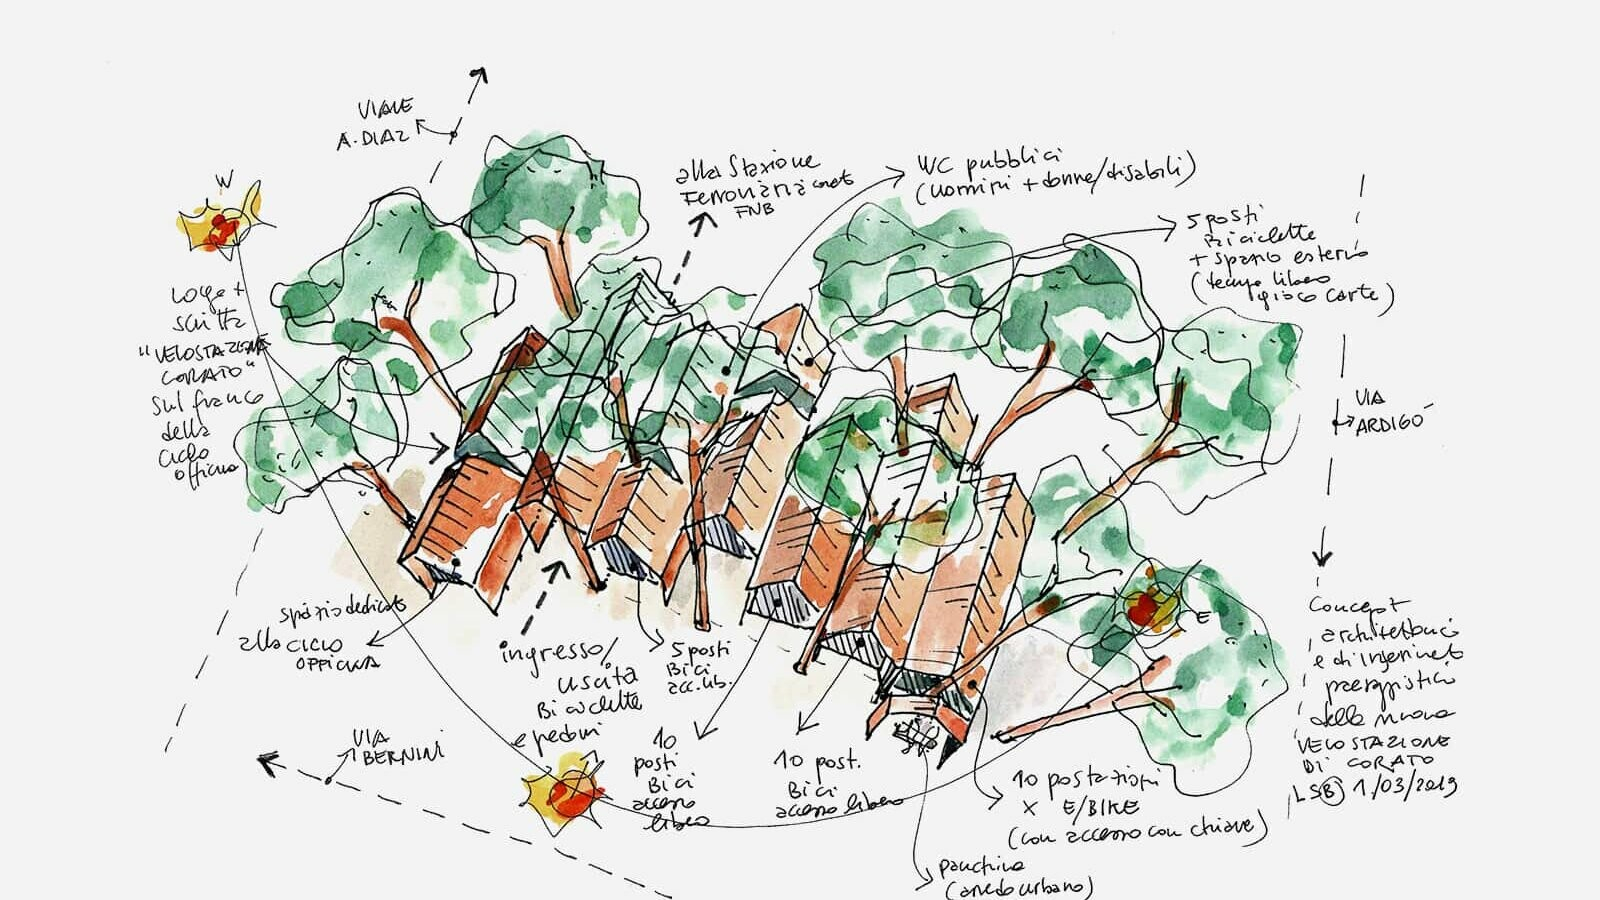 VIALE
A. DIAZ
W
Logo +
scritta
"VELOSTAZIONE
CORATO"
sul fianco
della
ciclo
officina
alla Stazione
Ferroviaria
FNB
WC pubblici
(uomini + donne/disabili)
5 posti
Biciclette
+ spazio esterno
(tempo libero
gioco carte)
VIA
ARDIGÒ
spazio dedicato
alla CICLO
OFFICINA
ingresso/
uscita
Biciclette
e pedoni
5 posti
Bici
acc. lib.
10
posti
Bici
accesso
libero
10 post.
Bici
accesso libero
10 postazioni
X E/BIKE
(con accesso con chiave)
panchina
(arredo urbano)
VIA
BERNINI
E
Concept
architettonico
e di inserimento
paesaggistico
della nuova
VELOSTAZIONE
DI CORATO
LSB 1/03/2019